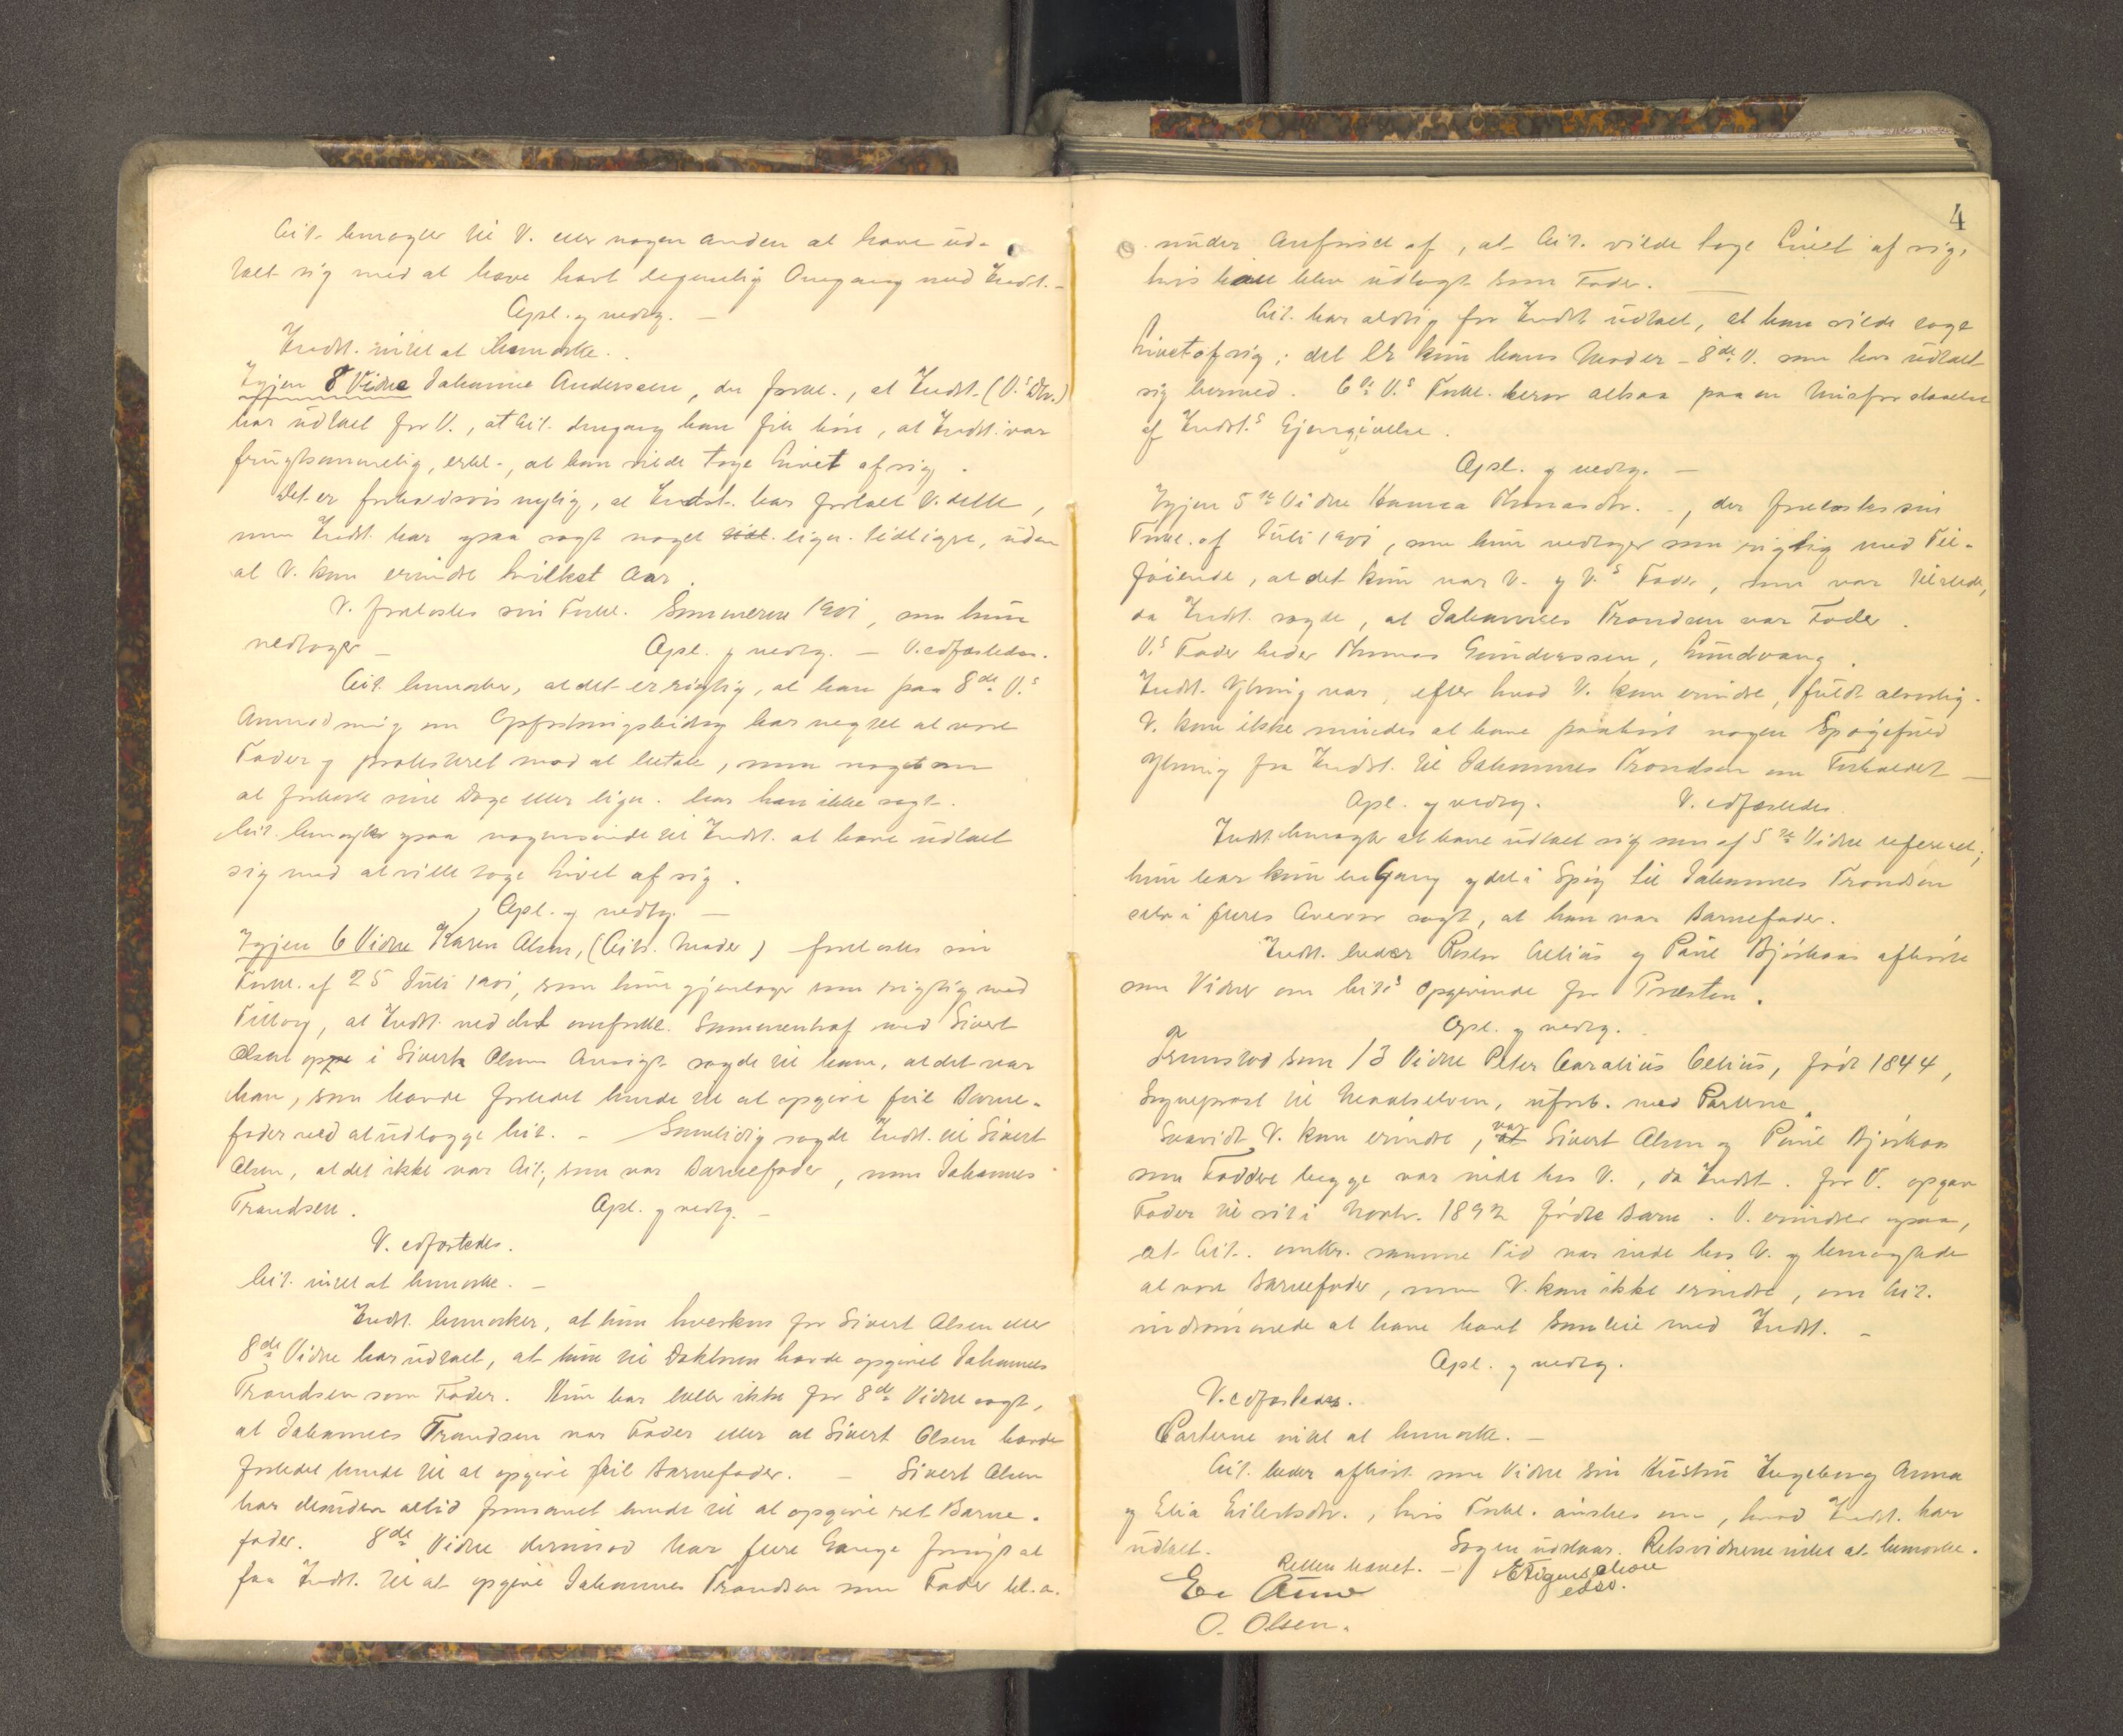 Cit. benegter til V. eller nogen anden at have ud-
talt sig med at have havt legemlig Omgang med Indst. -
Opl. og vedtg. -
Indst. intet at bemærke.
Igjen 8 Vidne Johanne Anderssen, der forkl., at Indst. (V.s Dtr.)
har udtalt for V., at Cit. dengang han fik höre, at Indst. var
frugtsommelig, erkl., at han vilde tage Livet af sig.
Det er forholdsvis nylig, at Indst. har fortalt V. dette,
men Indst. har ogsaa sagt noget lign. tidligere, uden
at V. kan erindre hvilket Aar.
V. forelæstes sin Forkl. Sommeren 1901, som hun
vedtager - Opl. og vedtg. - V. edfæstedes.
Cit. bemærker, at det er rigtig, at han paa 8de V.s
Anmodning om Opfostringsbidrag har negtet at være
Fader og protesteret mod at betale, men noget om
at forkorte sine Dage eller lign. har han ikke sagt.
Cit. benegter ogsaa nogensinde til Indst. at have udtalt
sig med at ville tage Livet af sig.
Opl. og vedtg. -
Igjen 6 Vidne Karen Olsen, (Cits. Moder) forelæstes sin
Forkl. af 25 Juli 1901, som hun gjentager som rigtig med
Tillæg, at Indst. ved det omforkl. Sammentræf med Sivert
Olsen oppe i Sivert Olsens Ansigt sagde til ham, at det var
ham, som havde forledet hende til at opgive feil Barne-
fader ved at udlægge Cit. - Samtidig sagde Indst. til Sivert
Olsen, at det ikke var Cit., som var Barnefader, men Johannes
Trondsen. Opl. og vedtg. -
V. edfæstedes.
Cit. intet at bemærke. -
Indst. bemærker, at hun hverken for Sivert Olsen eller
8de Vidne har udtalt, at hun til Doktoren havde opgivet Johannes
Trondsen som Fader. Hun har heller ikke for 8de Vidne sagt,
at Johannes Trondsen var Fader eller at Sivert Olsen havde
forledet hende til at opgive feil Barnefader. - Sivert Olsen
har desuden altid formanet hende til at opgive ret Barne-
fader. 8de Vidne derimod har flere Gange forsögt at
faa Indst. til at opgive Johannes Trondsen som Fader bl. a.
4
under Anförsel af, at Cit. vilde tage Livet af sig,
hvis han blev udlagt som Fader. -
Cit. har aldrig for Indst. udtalt, at han vilde tage
Livet af sig; det er kun hans Moder - 8de V. som har udtalt
sig hermed. 6te V.s Forkl. beror altsaa paa en Misforstaaelse
af Indst.s Gjengivelse.
Opl. og vedtg. -
Igjen 5te Vidne Hanna Thomasdtr. -, der forelæstes sin
Forkl. af Juli 1901, som hun vedtager som rigtig med Til-
föiende, at det kun var V. og V.s Fader, som var tilstede,
da Indst. sagde, at Johannes Trondsen var Fader.
V.s Fader heder Thomas Gunderssen, Lundvang.
Indst. Ytring var, efter hvad V. kan erindre, fuldt alvorlig.
V. kan ikke mindes at have paahört nogen Spögefuld
Ytring fra Indst. til Johannes Trondsen om Forholdet -
Opl. og vedtg. V. edfæstedes.
Indst. benegter at have udtalt sig som af 5te Vidne refereret;
hun har kun en Gang og det i Spög til Johannes Trondsen
selv i fleres Overvær sagt, at han var Barnefader.
Indst. beder Pastor Celius og Paul Björkaas afhörte
som Vidner om Cits. Opgivende for Præsten.
Opl. og vedtg.
Fremstod som 13 Vidne Peter Caralius Celius, född 1844,
Sogneprest til Maalselven, uforb. med Parterne.
Saavidt V. kan erindre, var Sivert Olsen og Paul Björkaas
som Faddere begge var inde hos V., da Indst. for V. opgav
Fader til sit i Novbr. 1892 fødte Barn. V. erindrer ogsaa,
at Cit. omkr. samme Tid var inde hos V. og benegtede
at være Barnefader, men V. kan ikke erindre, om Cit.
indrömmede at have havt Samleie med Indst. -
Opl. og vedtg.
V. edfæstedes.
Parterne intet at bemærke. -
Cit. beder afhört som Vidne sin Hustru Ingeborg Anna
og Elia Eilertsdtr., hvis Forkl. önskes om, hvad Indst. har
udtalt. Sagen udstaar. Retsvidnerne intet at bemærke.
Retten hævet. -
O. Olsen.